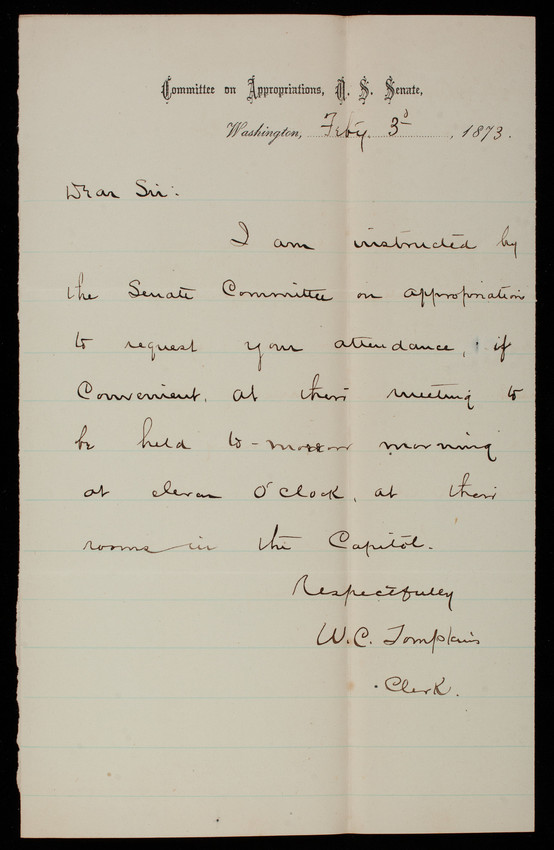 Committee on Appropriations, U. S. Senate,
Washington, Feby. 3d, 1873.
Dear Sir:
I am instructed by
the Senate Committee on appropriation
to request your attendance, if
Convenient, at their meeting to
be held to-morrow morning
at eleven O'Clock, at their
rooms in the Capitol.
Respectfully
W. C. Tompkins
Clerk.